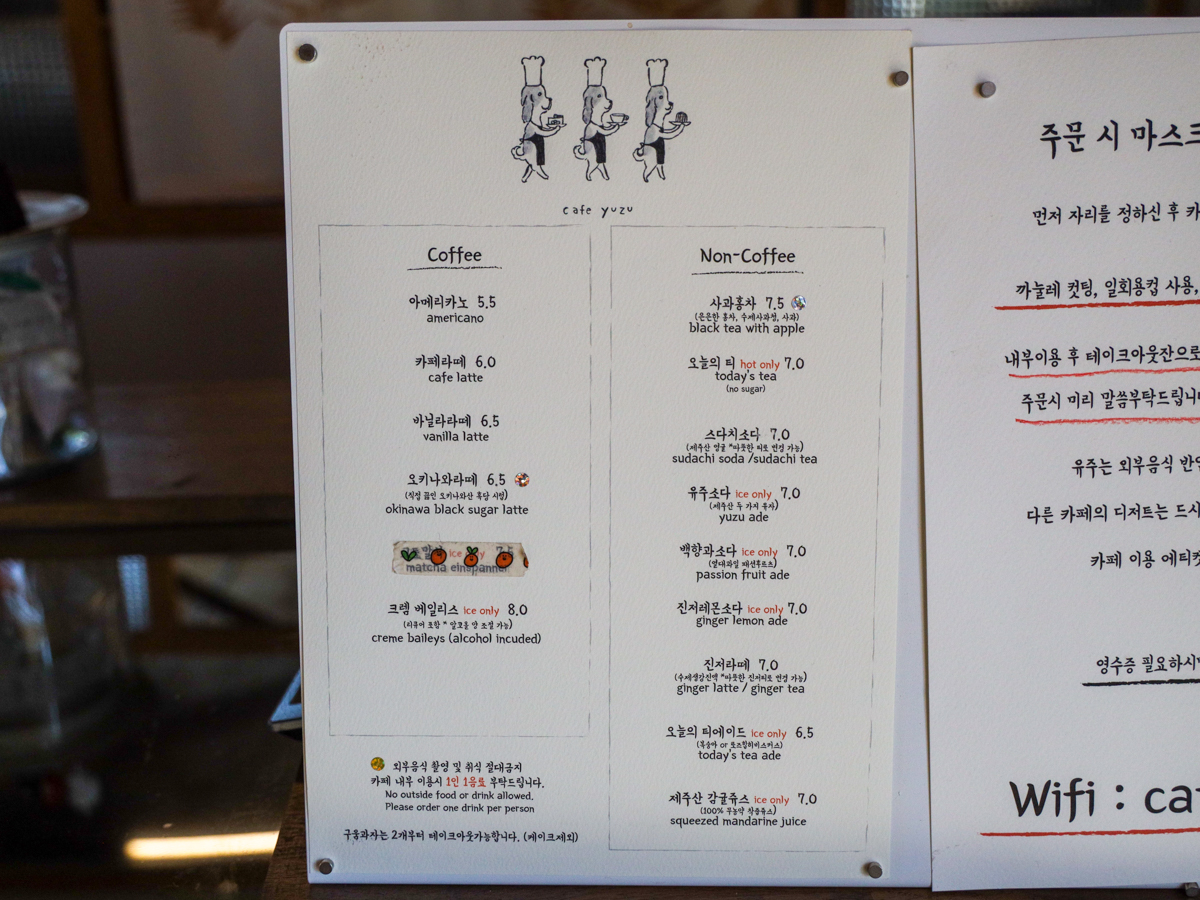 cafe yuzu
Coffee
아메리카노 5.5
americano
카페라떼 6.0
cafe latte
바닐라라떼 6.5
vanilla latte
오키나와라떼 6.5
(직접 끓인 오키나와산 흑당 시럽)
okinawa black sugar latte
말 ice only 7.5
matcha einspanner
크렘 베일리스 ice only 8.0
(리큐어 포함 * 알코올 양 조절 가능)
creme baileys (alcohol incuded)
외부음식 촬영 및 취식 절대금지
카페 내부 이용시 1인 1음료 부탁드립니다.
No outside food or drink allowed.
Please order one drink per person
구움과자는 2개부터 테이크아웃가능합니다. (케이크제외)
Non-Coffee
사과홍차 7.5
(은은한 홍차, 수제사과청, 사과)
black tea with apple
오늘의 티 hot only 7.0
today's tea
(no sugar)
스다치소다 7.0
(제주산 영귤 *따뜻한 티로 변경 가능)
sudachi soda /sudachi tea
유주소다 ice only 7.0
(제주산 두 가지 유자)
yuzu ade
백향과소다 ice only 7.0
(열대과일 패션후르츠)
passion fruit ade
진저레몬소다 ice only 7.0
ginger lemon ade
진저라떼 7.0
(수제생강진액 *따뜻한 진저티로 변경 가능)
ginger latte / ginger tea
오늘의 티에이드 ice only 6.5
(복숭아 or 로즈힙히비스커스)
today's tea ade
제주산 감귤쥬스 ice only 7.0
(100% 무농약 착즙쥬스)
squeezed mandarine juice
주문 시 마스크
먼저 자리를 정하신 후 카
까눌레 컷팅, 일회용컵 사용,
내부이용 후 테이크아웃잔으로
주문시 미리 말씀부탁드립니
유주는 외부음식 반입
다른 카페의 디저트는 드시
카페 이용 에티켓
영수증 필요하시
Wifi : ca